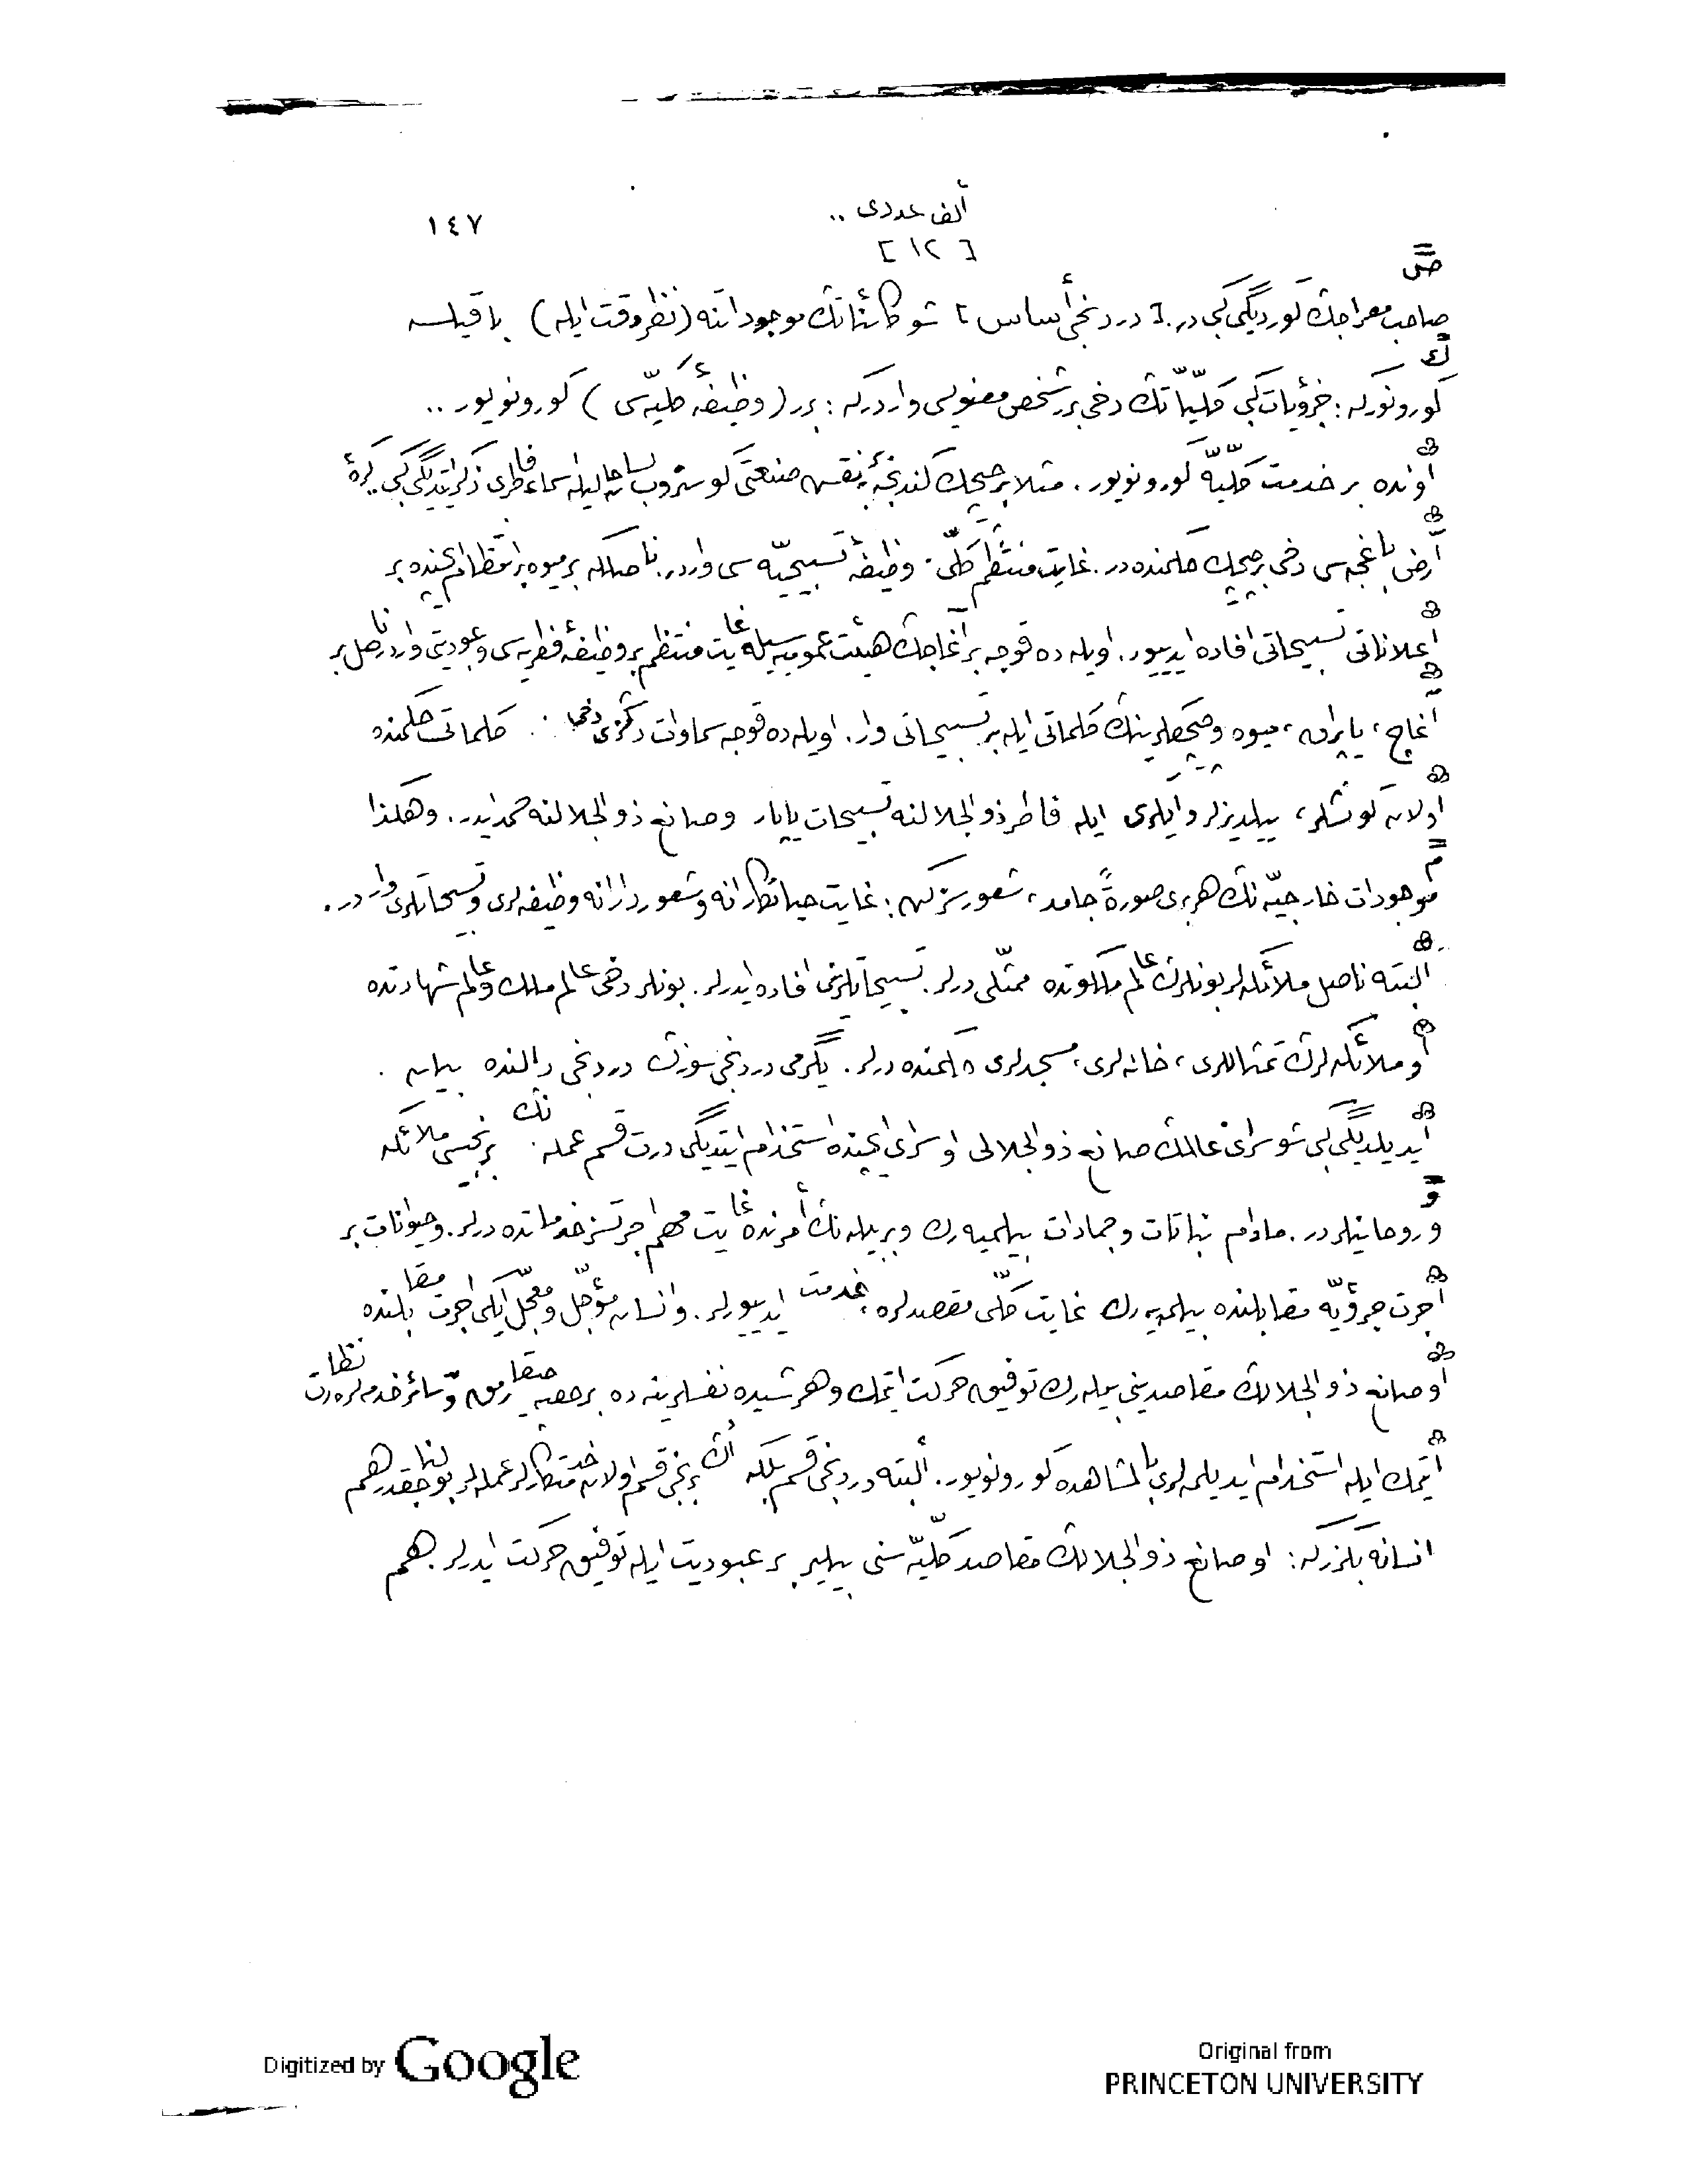 ألف عددی ..
١٤٧
[ ١٢ ]
ص
صاحب معراجڭ كورديگی كبی در. [ دردنجی أساس ] شو كائناتڭ موجوداتنه (نظر دقت ايله) باقيلسه
ك
كورونوركه: جزؤيات كبی كلّيّاتڭ دخی برر شخص معنویسی واردركه: برر (وظيفۀ كليّه‌سی) كورونويور ..
اونده بر خدمت كليّه كورونويور. مثلا بر چيچك كندنجه بر نقش صنعتی كوستروب لسان حاليله اسماء فاطری ذكر ايتديگی كبی كرۀ
أرض باغچه‌سی دخی بر چيچك حكمنده‌در. غايت منتظم كلّی وظيفۀ تسبيحيّه‌سی واردر. ناصلكه بر ميوه بر انتظام ايچنده بر
اعلاناتی تسبيحاتی افاده ايدييور. اويله‌ده قوجه بر آغاجڭ هيئت عموميه‌سيله غايت منتظم بر وظيفۀ فطريه‌سی و عبوديتی واردر ناصل بر
آغاج، ياپراق، ميوه و چيچكلرينڭ كلماتی ايله بر تسبيحاتی وار. اويله‌ده قوجه سماوات دڭزی دخی كلماتی حكمنده
اولان كونشلر، ييلديزلر و آيلری ايله فاطر ذوالجلالنه تسبيحات ياپار و صانع ذوالجلالنه حمد ايدر. وهكذا
م
موجودات خارجيّه‌نڭ هر بری صورةً جامد، شعورسز كن؛ غايت حياتكارانه و شعوردارانه وظيفه‌لری و تسبيحاتلری واردر.
ألبته ناصل ملائكه‌لر بونلرڭ عالم ملكوتده ممثّلی درلر. تسبيحاتلرينی افاده ايدرلر. بونلر دخی عالم ملك و عالم شهادتده
او ملائكه‌لرڭ تمثاللری، خانه‌لری، مسجدلری حكمنده درلر. يگرمی دردنجی سوزڭ دردنجی دالنده بيان
ايديلديگی كبی شو سرای عالمڭ صانع ذوالجلالی او سرای ايچنده استخدام ايتديگی درت قسم عمله‌نڭ برنجیسی ملائكه
و
و روحانيلردر. مادام نباتات و جمادات بيلميه‌رك و بر بيله‌نڭ أمرنده غايت مهم اجرتسز خدماتده درلر. و حيوانات بر
اجرت جزؤيّه مقابلنده بيلميه‌رك غايت كلّی مقصدلره خدمت ايدييورلر. و انسان مؤجّل و معجّل ايكی اجرت مقابلنده
او صانع ذوالجلالڭ مقاصدينی بيله‌رك توفيق حركت ايتمك و هر شيده نفسلرينه‌ده بر حصه چيقارمق و سائر خدمه‌لره نظارت
ايتمك ايله استخدام ايديلمه‌لری بالمشاهده كورونويور. ألبته دردنجی قسم بلكه أڭ برنجی قسم اولان خدمتكارلر عمله‌لر بولناجقدر هم
انسانه بڭزركه: او صانع ذوالجلالڭ مقاصد كليّه‌سنی بيلير بر عبوديت ايله توفيق حركت ايدرلر. هم
Digitized by Google
Original from
PRINCETON UNIVERSITY